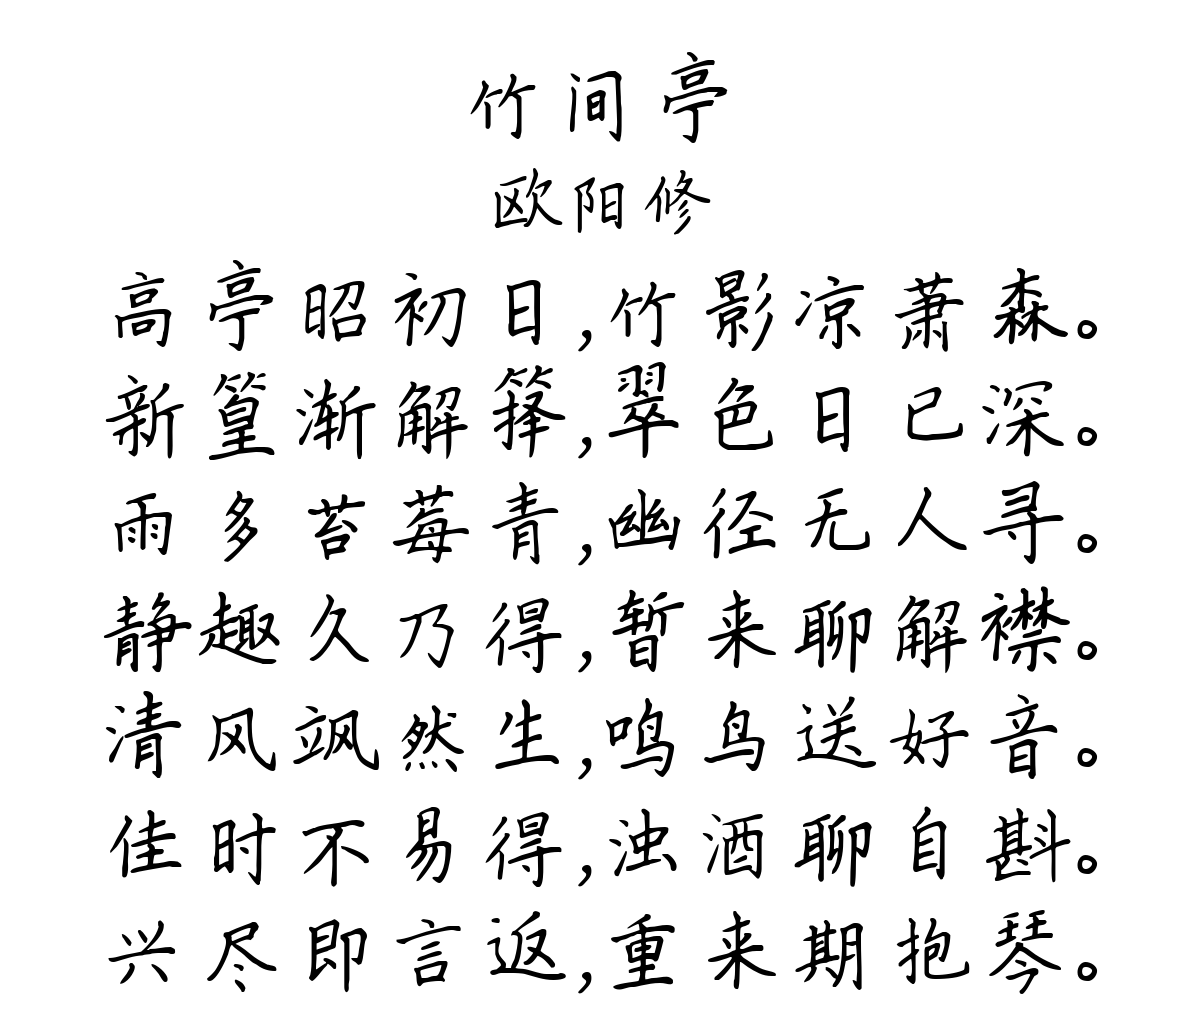 竹间亭
欧阳修
高亭昭初日,竹影凉萧森。
新篁渐解箨,翠色日已深。
雨多苔莓青,幽径无人寻。
静趣久乃得,暂来聊解襟。
清风飒然生,鸣鸟送好音。
佳时不易得,浊酒聊自斟。
兴尽即言返,重来期抱琴。